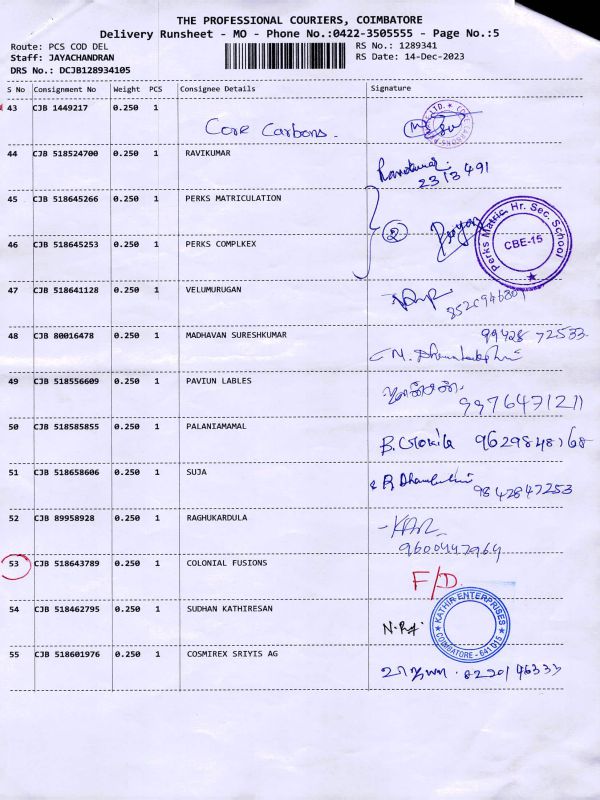 THE PROFESSIONAL COURIERS, COIMBATORE
Delivery Runsheet - MO - Phone No.:0422-3505555 - Page No.:5
Route: PCS COD DEL RS No.: 1289341
Staff: JAYACHANDRAN RS Date: 14-Dec-2023
DRS No.: DCJB128934105
S No Consignment No Weight PCS Consignee Details Signature
43 CJB 1449217 0.250 1 Core Carbons.
44 CJB 518524700 0.250 1 RAVIKUMAR
2313491
45 CJB 518645266 0.250 1 PERKS MATRICULATION
2
Perks Matric. Hr. Sec. School
CBE-15
46 CJB 518645253 0.250 1 PERKS COMPLKEX
47 CJB 518641128 0.250 1 VELUMURUGAN
48 CJB 80016478 0.250 1 MADHAVAN SURESHKUMAR 99428 72533
49 CJB 518556609 0.250 1 PAVIUN LABLES
9976471211
50 CJB 518585855 0.250 1 PALANIAMAMAL 9629848168
51 CJB 518658606 0.250 1 SUJA
9842847253
52 CJB 89958928 0.250 1 RAGHUKARDULA
9600447964
53 CJB 518643789 0.250 1 COLONIAL FUSIONS
F/D.
54 CJB 518462795 0.250 1 SUDHAN KATHIRESAN
KATHIR ENTERPRISES
COIMBATORE - 641 015
55 CJB 518601976 0.250 1 COSMIREX SRIYIS AG